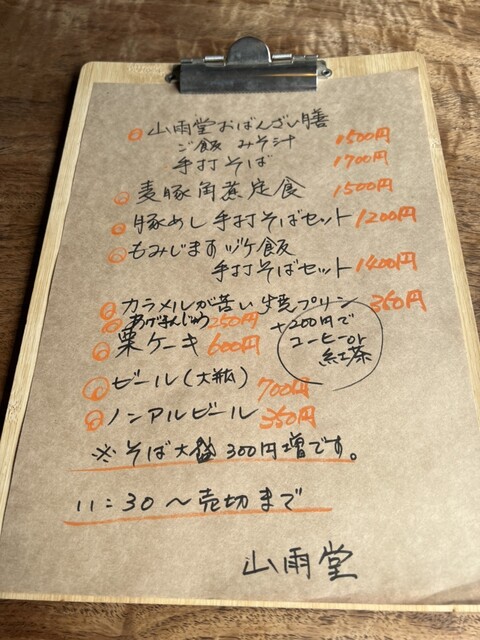 山雨堂おばんざい膳
ご飯 みそ汁 1500円
手打そば 1700円
麦豚角煮定食 1500円
豚めし手打そばセット 1200円
もみじますヅケ飯
手打そばセット 1400円
カラメルが苦い焼プリン 350円
あげまんじゅう 250円
栗ケーキ 600円
+200円で
コーヒーor
紅茶
ビール(大瓶) 700円
ノンアルビール 350円
※そば大盛300円増です。
11:30～売切まで
山雨堂